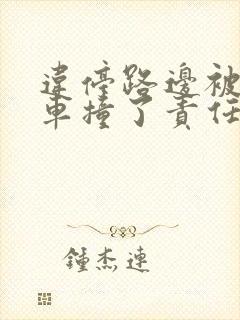 違停路邊被
車撞了責任
鍾杰連